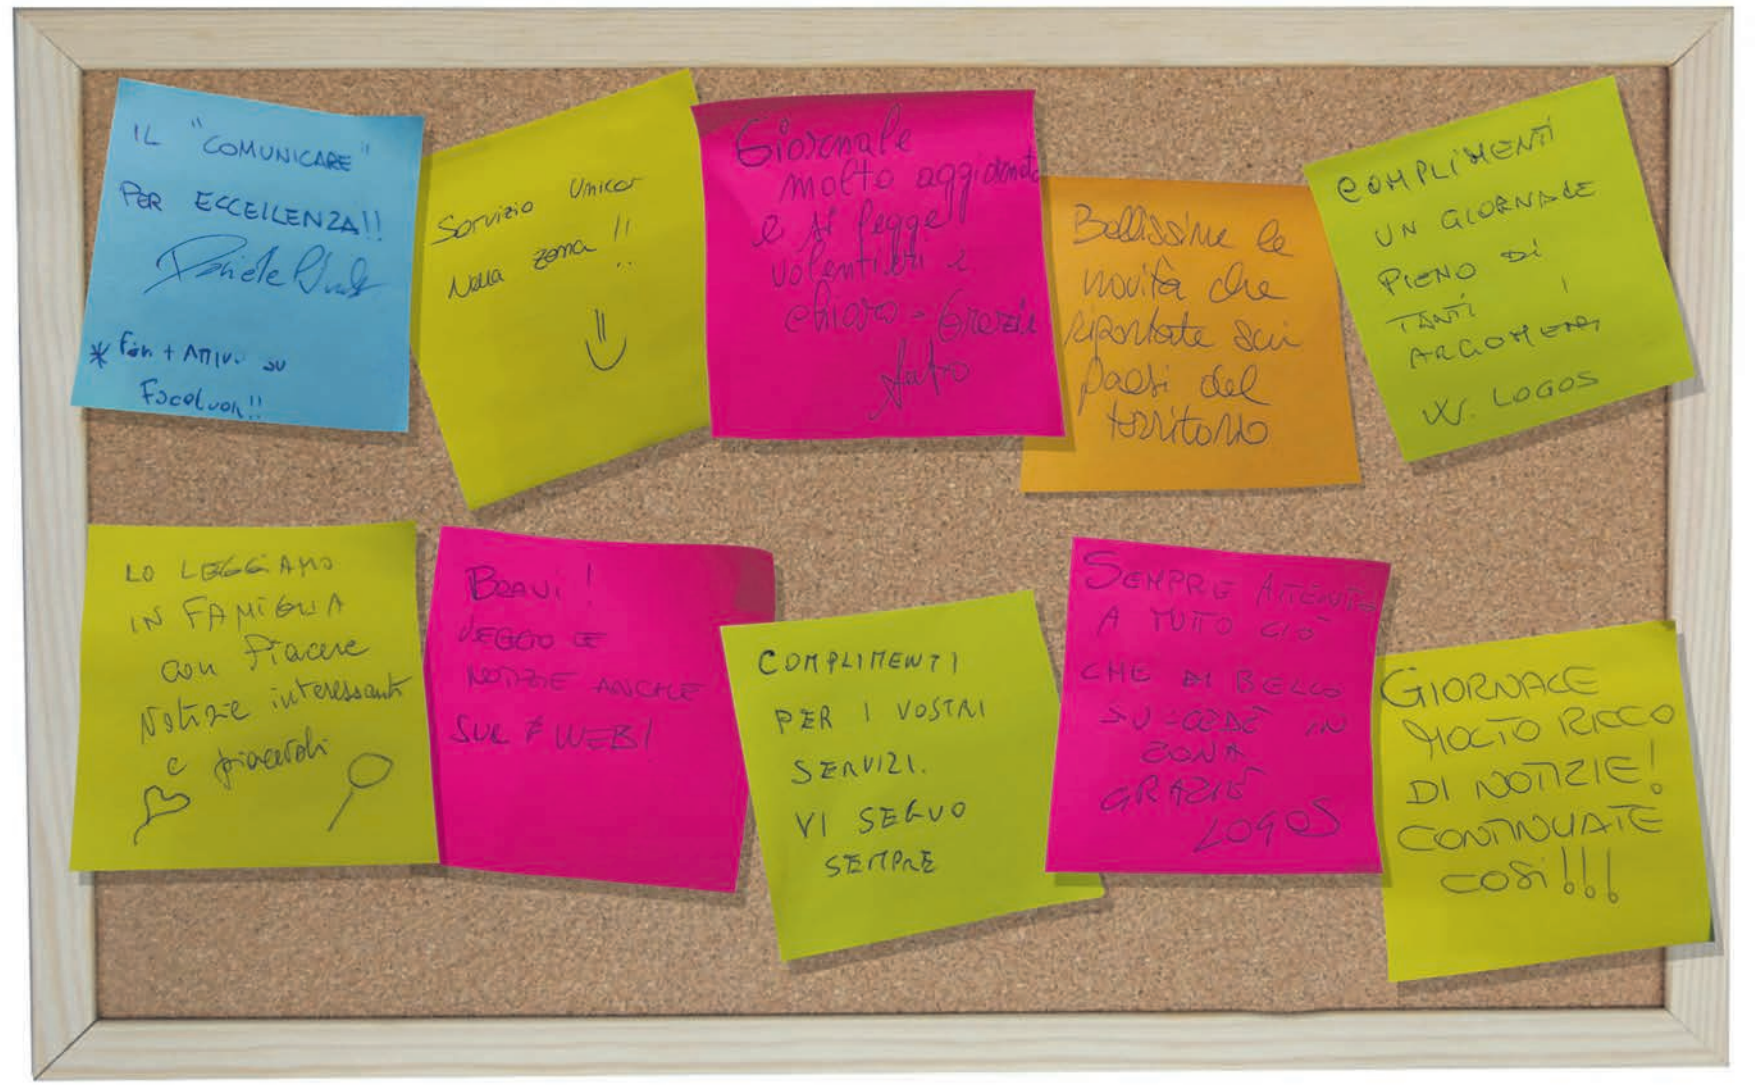 IL "COMUNICARE"
PER ECCELLENZA!!
Daniele
* fan + ATTIVO su
Facebook!!
Servizio Unico
Nella zona !!
Giornale
molto aggiornato
e si legge
volentieri e
chiaro - Grazie
Bellissime le
novità che
riportate sui
paesi del
territorio
COMPLIMENTI
UN GIORNALE
PIENO DI
TANTI
ARGOMENTI
W. LOGOS
LO LEGGIAMO
IN FAMIGLIA
con Piacere
Notizie interessanti
e piacevoli
BRAVI!
LEGGO LE
NOTIZIE ANCHE
SUL WEB!
COMPLIMENTI
PER I VOSTRI
SERVIZI.
VI SEGUO
SEMPRE
SEMPRE ATTENTI
A TUTTO CIÒ
CHE DI BELLO
SUCCEDE IN
ZONA
GRAZIE
LOGOS
GIORNALE
MOLTO RICCO
DI NOTIZIE!
CONTINUATE
COSÌ!!!